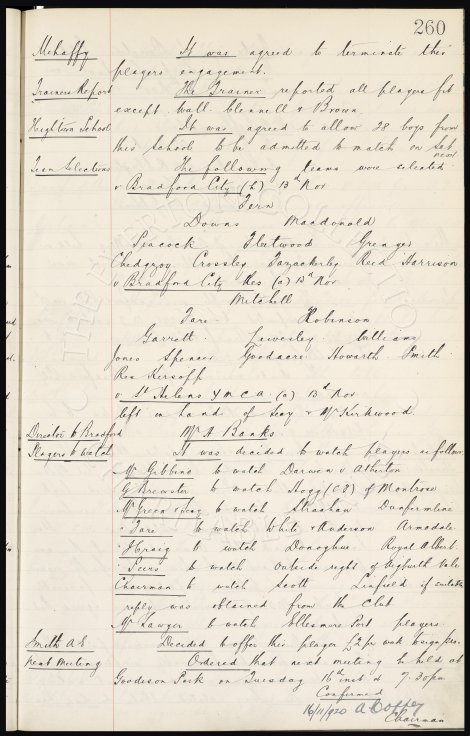 260
Mehaffy It was agreed to terminate this
players engagement.
Trainers Report The Trainer reported all players fit
except Wall. Clennell & Brown
Hightown School It was agreed to allow 28 boys from
this school to be admitted to match on Sat
next
Team Selections The following teams were selected
v Bradford City (h) 13th Nov
Fern
Downs Macdonald
Peacock Fleetwood Grenyer
Chedgzoy Crossley Fazackerley Reid Harrison
v Bradford City Res (a) 13th Nov
Mitchell
Fare Robinson
Garrett Lewesley Williams
Jones Spencer Goodacre Howarth Smith
Res Kersoff
v St Helens Y M C A. (a) 13th Nov
left in hand of Secy & Mr Kirkwood.
Director to Bradford Mr A. Banks.
Players to Watch It was decided to watch players as follows
Mr Gibbins to watch Darwen v Atherton
G Brewster to watch Hogg (C.F.) of Montrose
Mr Green & Secy to watch Strachan Dunfermline
" Fare to watch White & Anderson Armadale
" J Craig to watch Donoghue Royal Albert.
" to watch Outside right of Hepburth Vale
Chairman to watch Scott Linfield if suitable
reply was obtained from the Club
Mr Sawyer to watch Ellesmere Port players
Smith A E Decided to offer this player £2 per week to sign pro.
Next Meeting Ordered that next meeting be held at
Goodison Park on Tuesday 16th inst at 7-30pm
Confirmed
16/11/920 A Coffey
Chairman